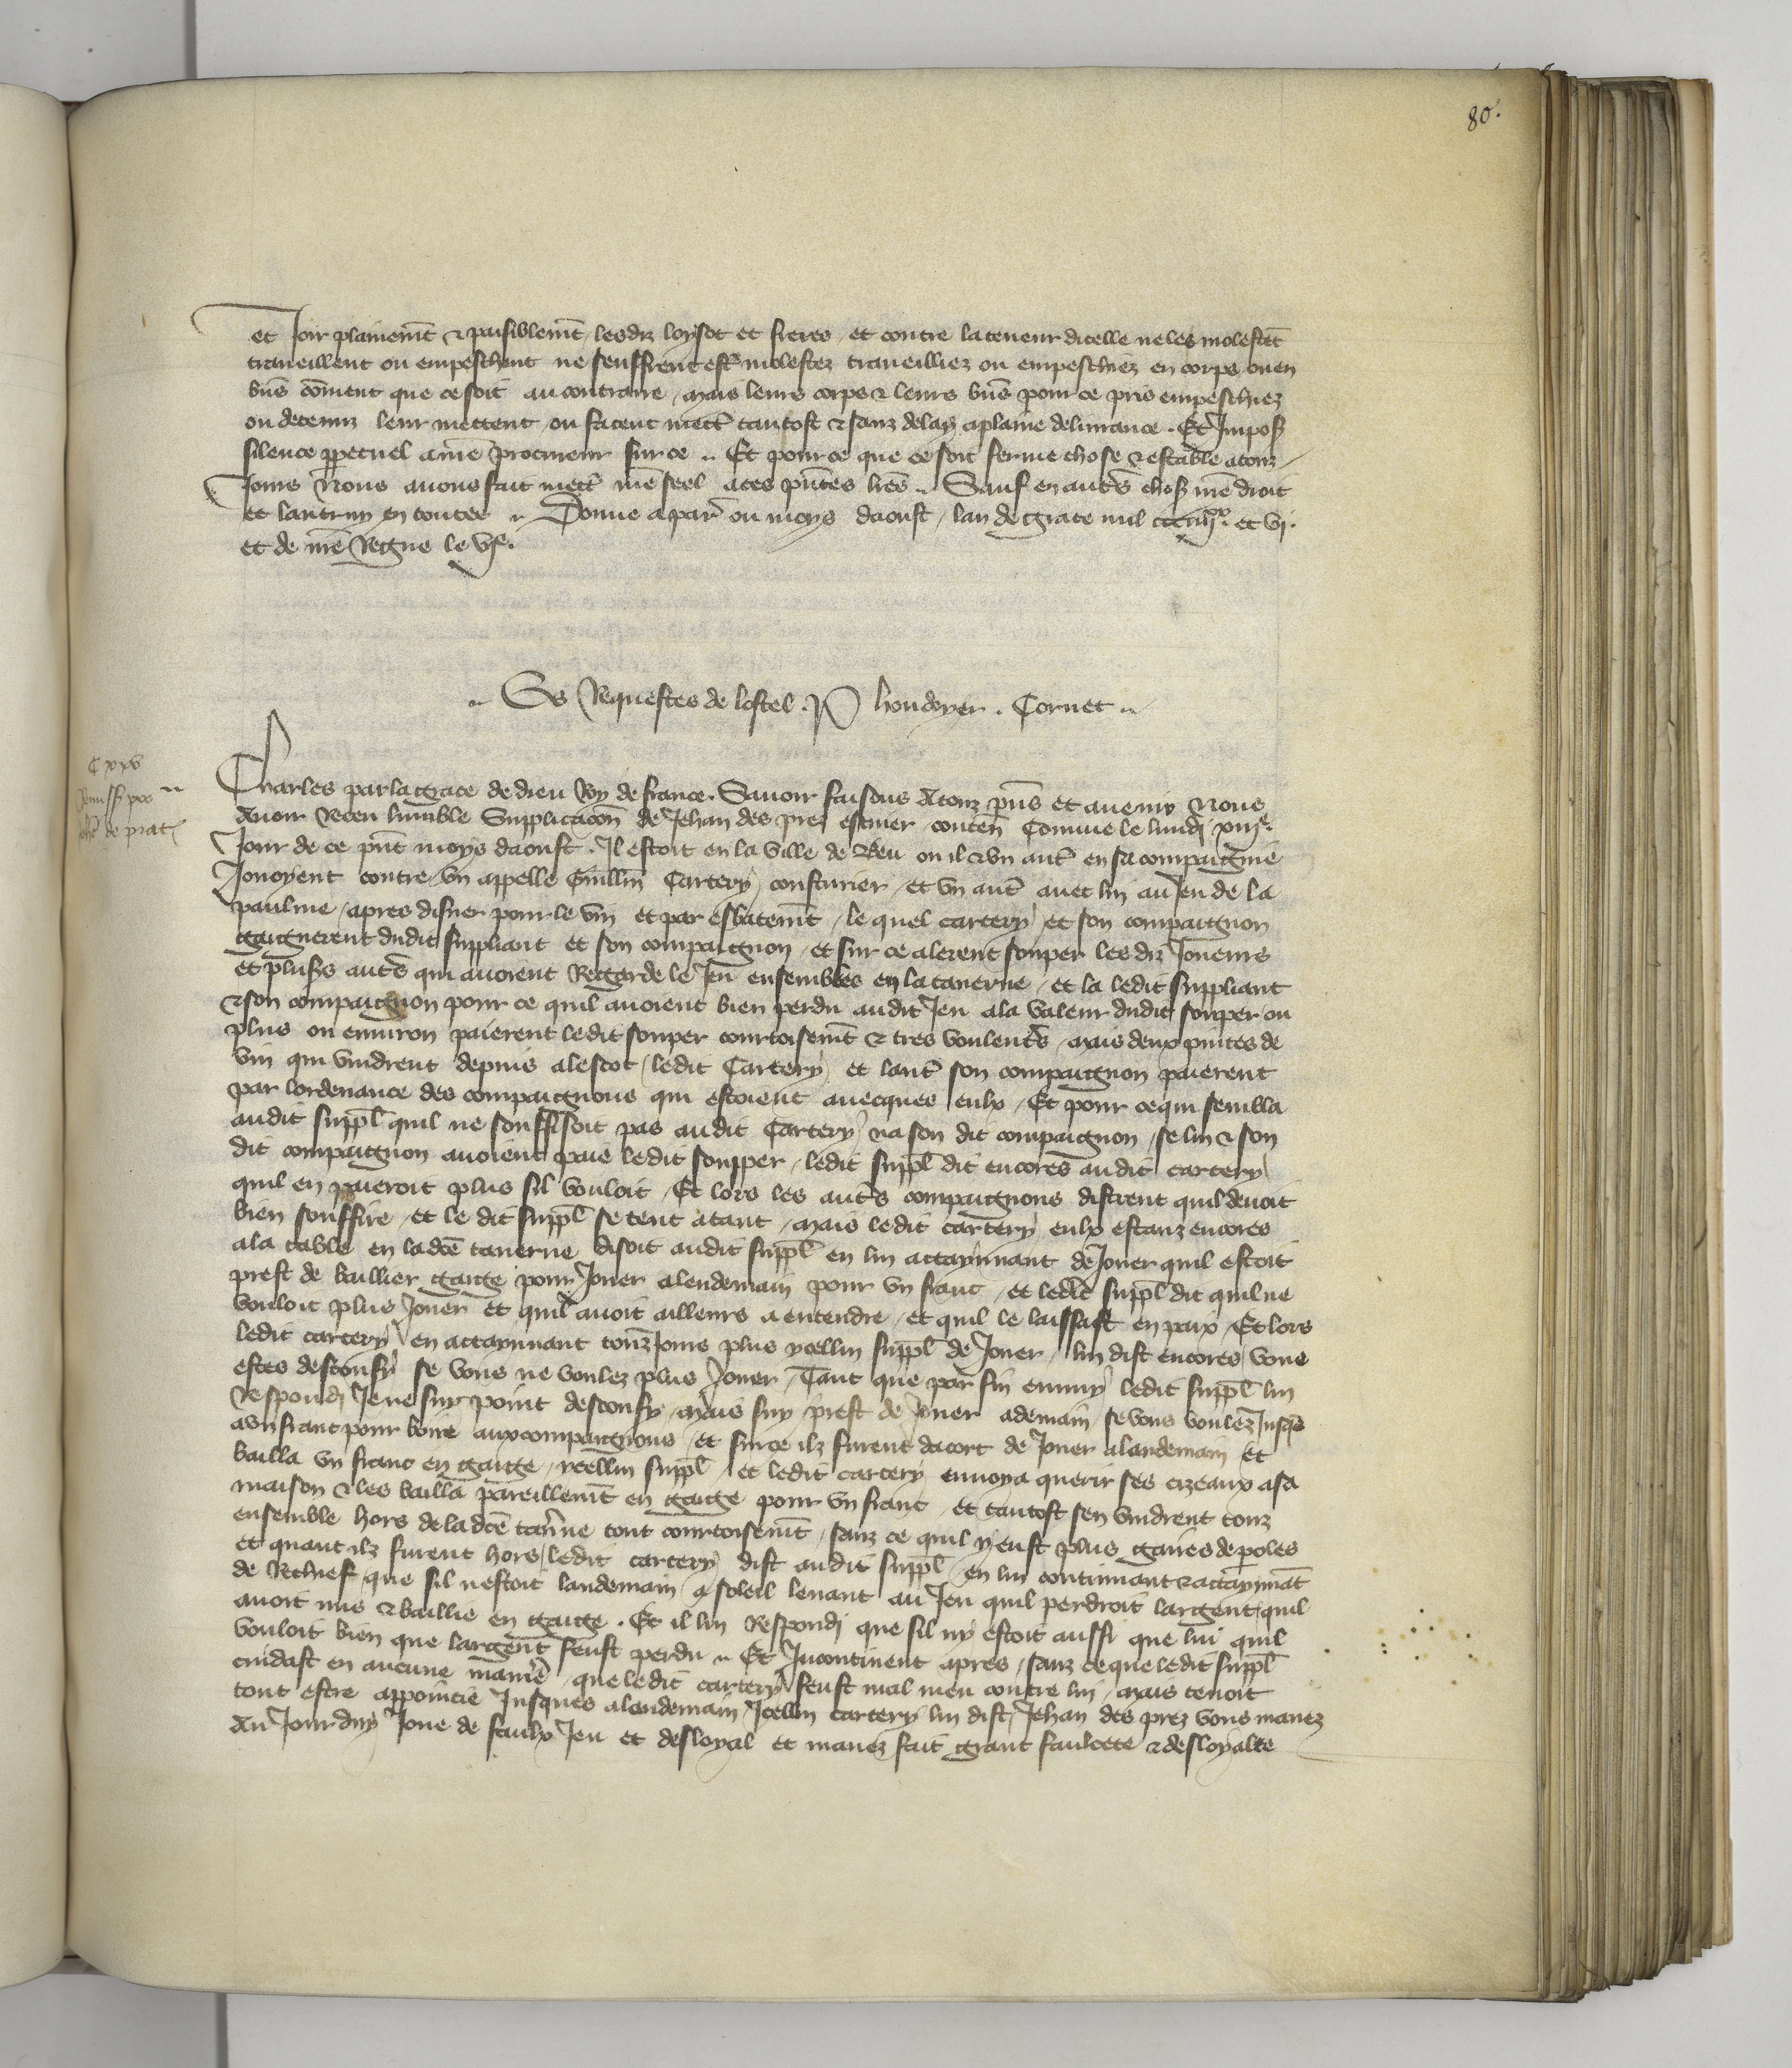 80.
et Joir plainemt & paisiblemt lesdiz loysot et freres et contre la teneur dicelle ne les molestet
traueillent ou empeschent ne seuffrent estr molestez traueilliez ou empeschiez en corps ou en
bns coment que ce soit au contraire mais leurs corps & leurs bns pour ce pris empeschiez
ou detenuz leur mettent ou facent mectr tantost & sanz delay a plaine deliurance . Et Imposs
silence ppetuel a nre procureur sur ce .. Et pour ce que ce soit ferme chose & estable a touz
Jours Nous auons fait mectr nre seel a ces pntes lres .. Sauf en autrs choses nre droit
et lautruy en toutes .. Donne a par ou moys daoust lan de grace mil ccc iiijxx. et vj.
et de nre Regne le vje.
.. Es Requestes de lostel . P houdyer . Cornet ..
C xxv
Remiss por
Jehn de prat
Charles par la grace de dieu Roy de france . Sauoir faisons A touz pns et auenir Nous
Auoir Receu humble Supplicacon de Jehan des prez escuier conten Comme le lundj xiije.
Jour de ce pnt moys daoust . Il estoit en la ville de Reu ou il & vn autr en sa compaignie
Jouoyent contre vn appelle Guillin Cartery cousturier et vn autr auec luj au Jeu de la
paulme apres disner pour le vin et par esbatemt le quel cartery et son compaignon
gaignerent dudit suppliant et son compaignon et sur ce alerent souper lesdiz Joueurs
et plusrs autrs qui auoient Regarde le Jeu ensembles en la tauerne et la ledit suppliant
& son compaignon pour ce quil auoient bien perdu audit Jeu a la valeur dudit souper ou
plus ou enuiron paierent ledit souper courtoisemt & tres voulentrs mais deux pintes de
vin qui vindrent depuis a lescot ledit Cartery et lautr son compaignon paierent
par lordenance des compaignons qui estoient auecques eulx Et pour ce qui sembla
audit suppl quil ne souffisoit pas audit Cartery na son dit compaignon se lui & son
dit compaignon auoient paie ledit soupper ledit suppl dit encores audit cartery
quil en paieroit plus sil vouloit Et lors les autrs compaignons distrent quil deuoit
bien souffire et le dit suppl se tent atant mais ledit cartery eulx estanz encores
a la table en ladce tauerne disoit audit suppl en lui attaynnant de Jouer quil estoit
prest de baillier gaige pour Jouer a lendemain pour vn franc et ledit suppl dit quil ne
vouloit plus Jouer et quil auoit ailleurs a entendre et quil le laissast en paix Et lors
ledit cartery en attaynnant touz Jours plus ycellui suppl de Jouer lui dist encores vous
estes desconfy se vous ne voulez plus Jouer Tant que par fin ennuy ledit suppl lui
Respondj Je ne suy point desconfy mais suy prest de Jouer a demain se vous voulez Jusqs
a vn franc pour boire aux compaignons et sur ce ilz furent dacort de Jouer a landemain Et
bailla vn franc en gaige ycellui suppl et ledit cartery enuoya querir ses cizeaux a sa
maison & les bailla pareillemt en gaige pour vn franc et tantost sen vindrent touz
ensemble hors de ladce taurne tout courtoisemt sanz ce quil y eust plus gaires de poles
et quant ilz furent hors ledit cartery dist audit suppl en lui continuant & attaynnat
de Rechief que sil nestoit landemain a soleil leuant au Jeu quil perdroit largent quil
auoit mis & baillie en gaige . Et il lui Respondj que sil ny estoit aussi que lui quil
vouloit bien que largent feust perdu .. Et Incontinent apres sanz ce que ledit suppl
cuidast en aucune manre que ledit cartery feust mal meu contre luj mais tenoit
tout estre appointie Jusques a lendemain Icellui cartery lui dist Jehan des prez vous mauez
Au Jourduy Joue de faulx Jeu et desloyal et mauez fait grant faulcete & desloyalte